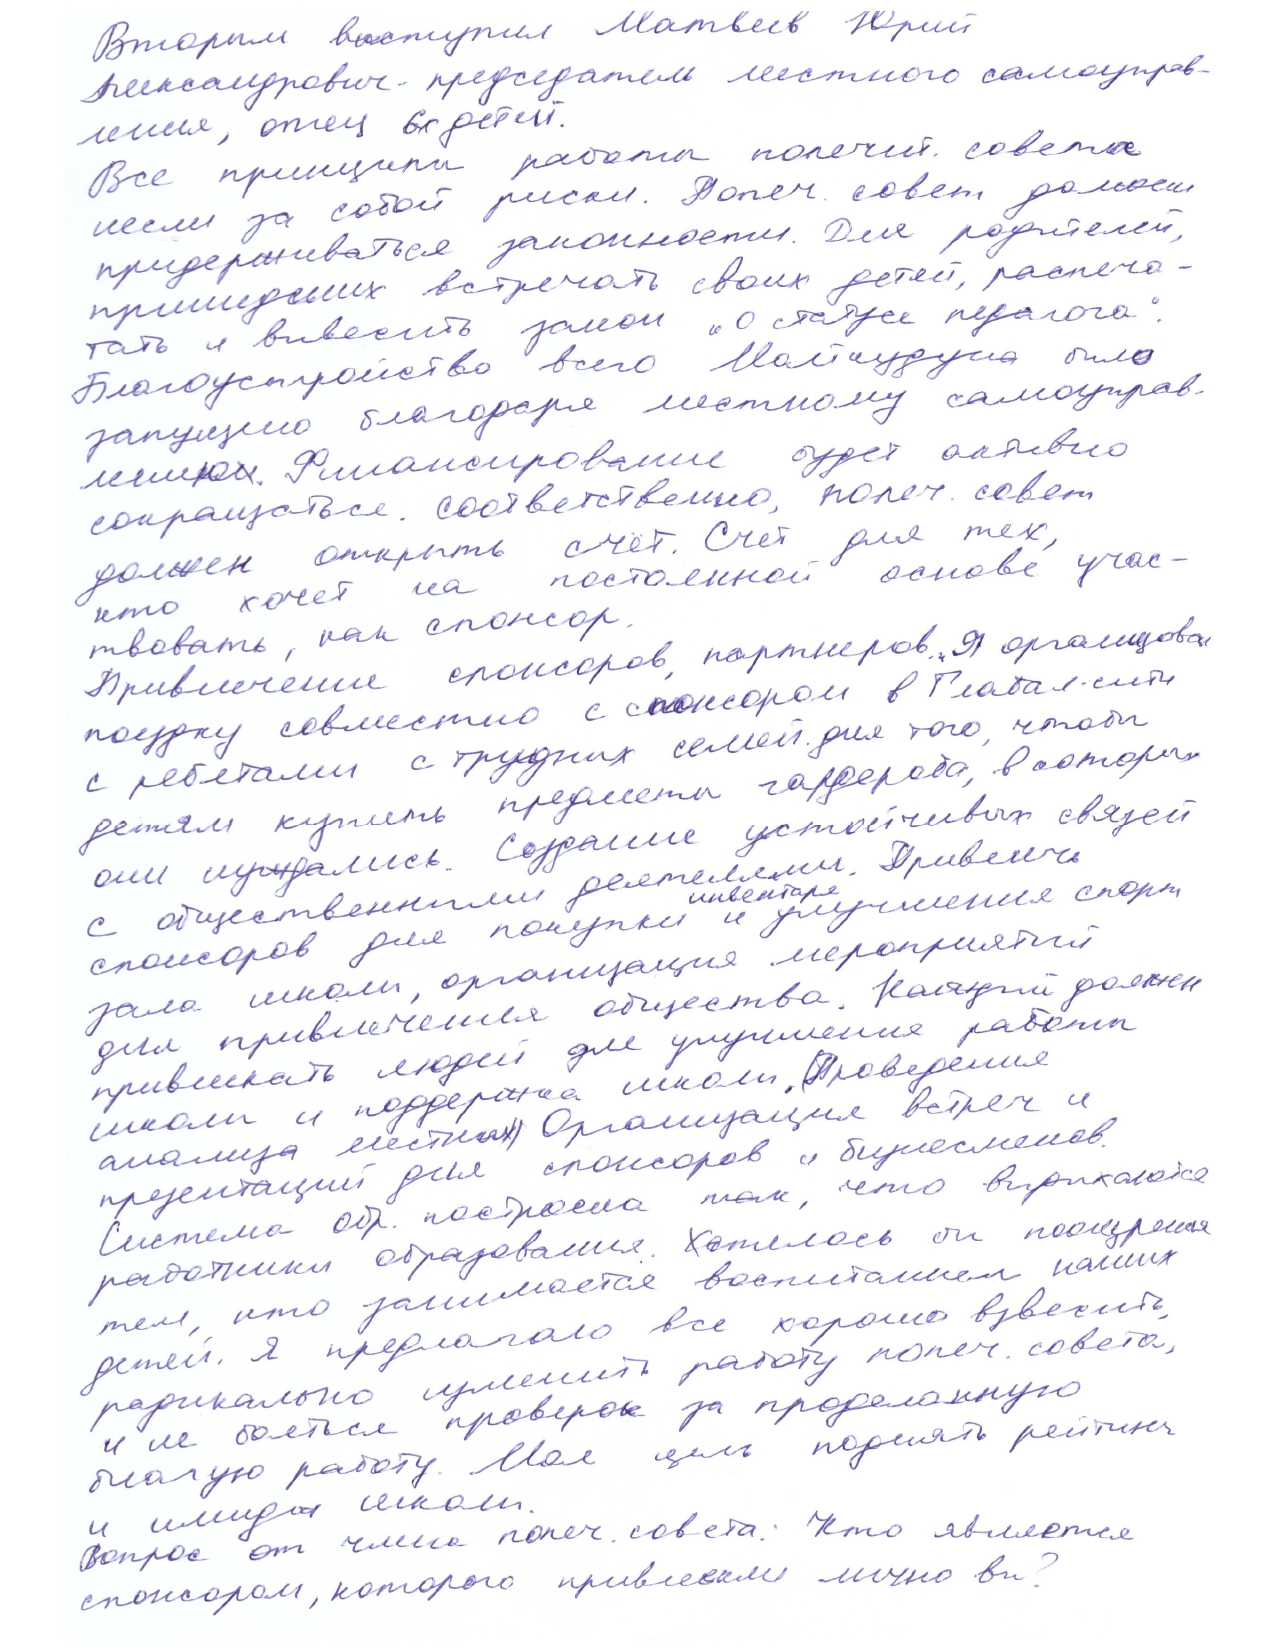 Вторым выступил Матвеев Юрий
Александрович - председатель местного самоуправ-
ления, отец 6х детей.
Все принципы работы попечит. совета
несли за собой риски. Попеч. совет должен
придерживаться законности. Для родителей,
пришедших встречать своих детей, распеча-
тать и вывесить закон „О статусе педагога".
Благоустройство всего Майкудука было
запущено благодаря местному самоуправ-
лению. Финансирование будет активно
сокращаться. Соответственно, попеч. совет
должен открыть счёт. Счет для тех,
кто хочет на постоянной основе учас-
твовать, как спонсор.
Привлечение спонсоров, партнеров. „Я организовал
поездку совместно с спонсором в Глобал-сити
с ребятами с трудных семей для того, чтобы
детям купить предметы гардероба, в которых
они нуждались. Создание устойчивых связей
с общественными деятелями. Привлечь
спонсоров для покупки инвентаря и улучшения спорт
зала школы, организация мероприятий
для привлечения общества. Каждый должен
привлекать людей для улучшения работы
школы и поддержка школы. (Проведения
анализа местных) Организация встреч и
презентаций для спонсоров и бизнесменов.
Система обр. построена так, что
работники образования. Хотелось бы поощрения
тем, кто занимается воспитанием наших
детей. Я предлагаю все хорошо взвесить,
радикально изменить работу попеч. совета,
и не бояться проверок за проделанную
благую работу. Моя цель поднять рейтинг
и имидж школы.
Вопрос от члена попеч. совета: Кто является
спонсором, которого привлекли лично вы?